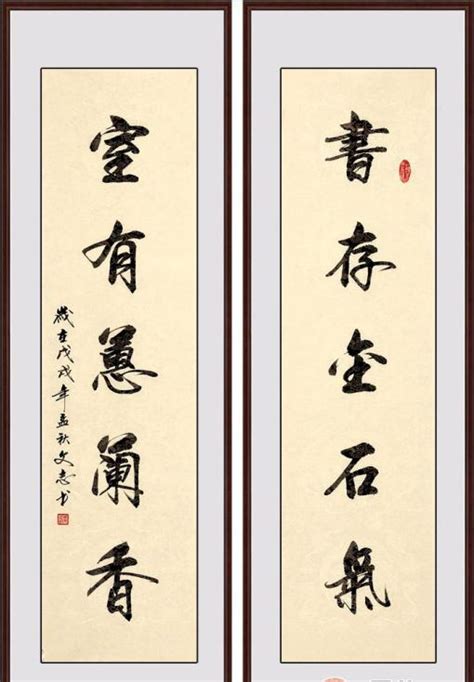 書存金石氣
室有蕙蘭香
歲在戊戌年孟秋文志书